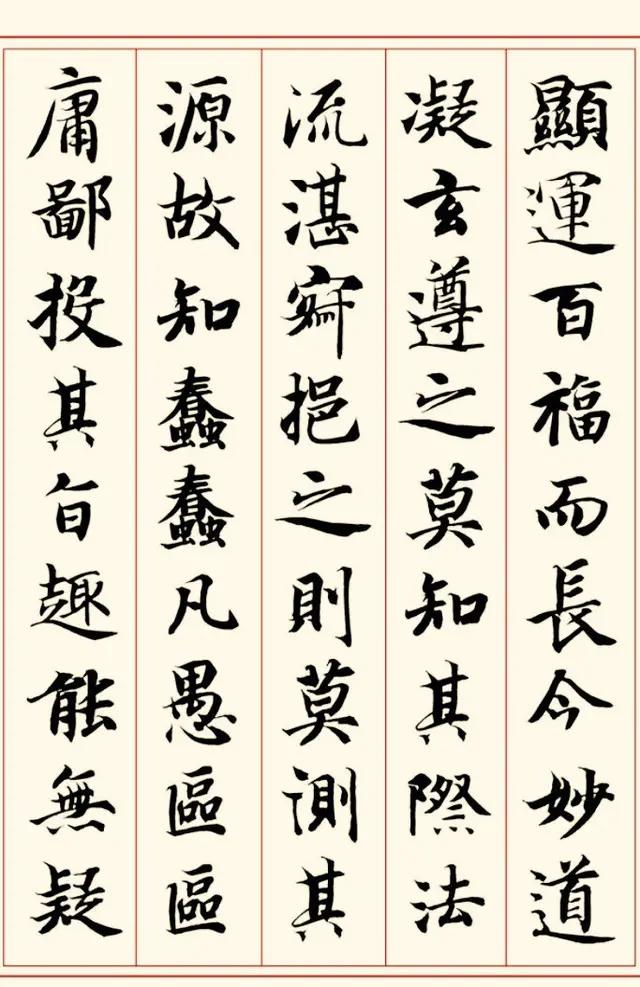 顯運百福而長今妙道
凝玄遵之莫知其際法
流湛寂挹之則莫測其
源故知蠢蠢凡愚區區
庸鄙投其旨趣能無疑